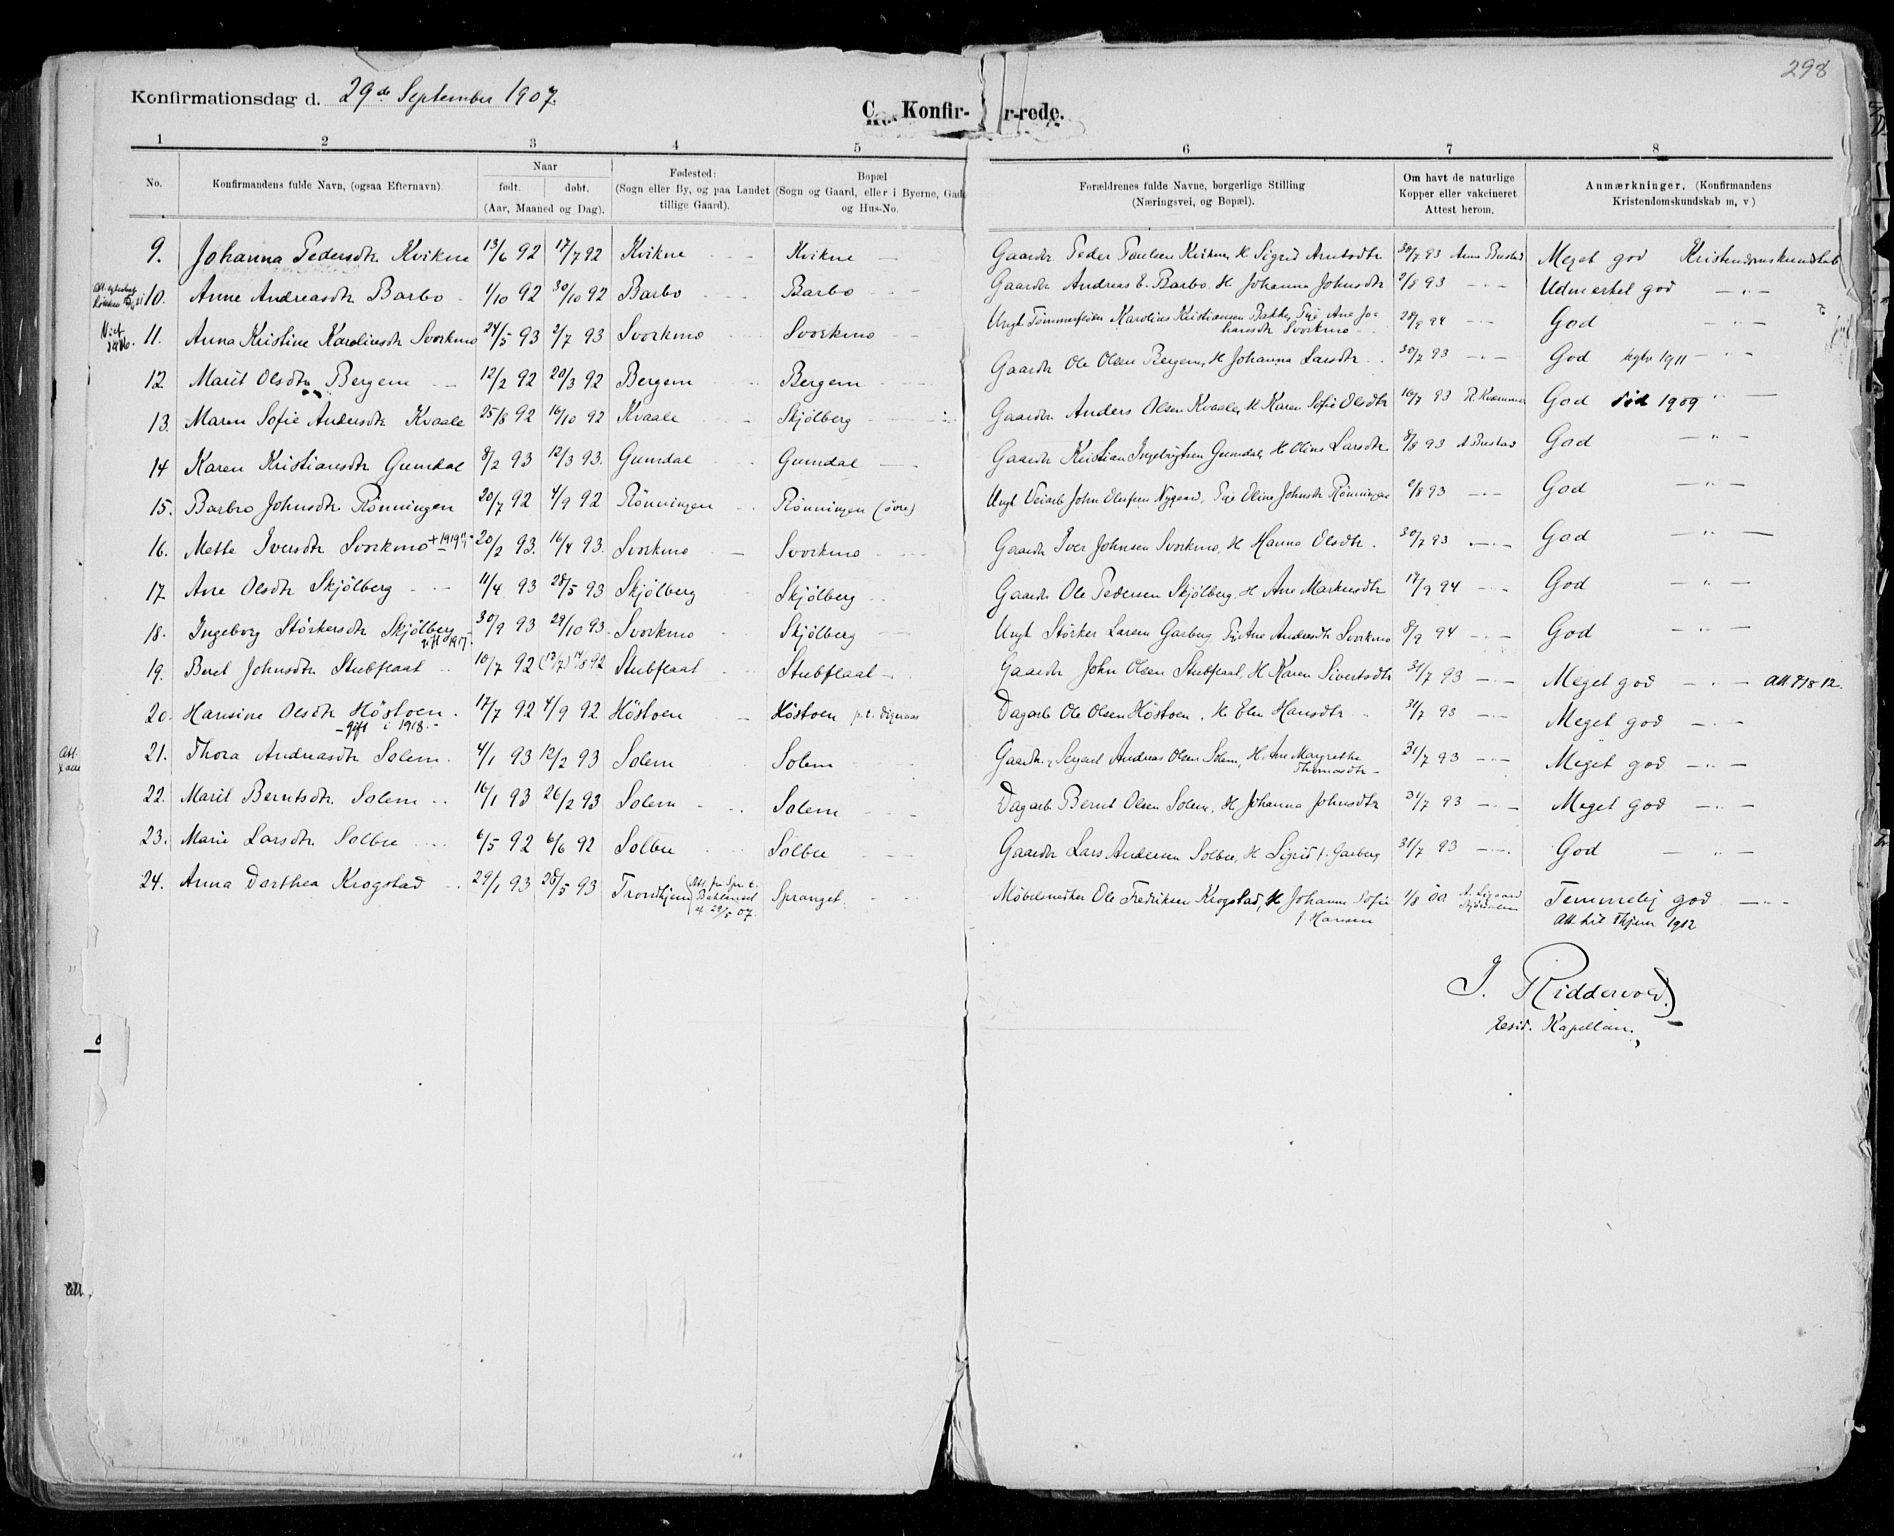 298
Konfirmationsdag d. 29de September 1907.
C. Konfir- r-rede.
1 2 3 4 5 6 7 8
No. Konfirmandens fulde Navn, (ogsaa Efternavn). Naar født. døbt. (Aar, Maaned og Dag). Fødested: (Sogn eller By, og paa Landet tillige Gaard). Bopæl (Sogn og Gaard, eller i Byerne, Gade og Hus-No. Forældrenes fulde Navne, borgerlige Stilling (Næringsvei, og Bopæl). Om havt de naturlige Kopper eller vakcineret Attest herom. Anmærkninger. (Konfirmandens Kristendomskundskab m, v)
9. Johanna Pedersdtr Kvikne 13/6 92 17/7 92 Kvikne Kvikne Gaardbr Peder Paulsen Kvikne, H Sigrid Arntsdtr 30/7 93 Anna Bustad Meget god Kristendomskundskab
10. Anne Andreasdtr Barbo 1/10 92 30/10 92 Barbo Barbo Gaardbr Andreas E. Barbo. H Johanna Johnsdtr 2/8 93 —"— Udmerket god —"—
11. Anna Kristine Karolinsdtr Svorkmo 24/5 93 2/7 93 Svorkmo Svorkmo Ungk Tømmerfløder Karolius Kristiansen Bakke, Pige Ane Johansdtr Svorkmo 28/9 94 —"— God —"—
12. Marit Olsdtr Bergem 12/2 92 20/3 92 Bergem Bergem Gaardbr Ole Olsen Bergem, H Johanna Larsdtr 30/7 93 —"— God 1911 —"—
13. Maren Sofie Andersdtr Kvaale 25/8 92 16/10 92 Kvaale Skjølberg Gaardbr Anders Olsen Kvaale, H Karen Sofie Olsdtr 16/7 93 God död 1909 —"—
14 Karen Kristiansdtr Gumdal 8/2 93 12/3 93. Gumdal Gumdal Gaardbr Kristian Ingebrigtsen Gumdal, H Oline Larsdtr 8/8 93 A Bustad God —"—
15. Barbro Johnsdtr Rønningen 20/7 92 4/9 92 Rønningen Rønningen (øvre) Ungk Veiarb John Olufsen Nygaard, Pige Oline Johnsdtr Rønningen 2/8 93 —"— God —"—
16. Mette Iversdtr Svorkmo + 1919 20/2 93. 16/4 93. Svorkmo Svorkmo Gaardbr Iver Johnsen Svorkmo, H Hanna Olsdtr. 30/7 93 —"— God —"—
17. Ane Olsdtr Skjølberg 11/4 93 28/5 93 Skjølberg Skjølberg Gaardbr Ole Pedersen Skjølberg, H Ane Markusdtr 17/9 94 —"— God —"—
18. Ingeborg Størkersdtr Skjølberg 1917. 30/9 93 29/10 93. Svorkmo Skjølberg Ungk Størker Larsen Garberg Pige Ane Andersdtr Svorkmo 8/9 94 —"— God —"—
19. Beret Johnsdtr Stubflaat 10/7 92 (17/7) 14/8 92 Stubflaat Stubflaat Gaardbr John Olsen Stubflaat, H Karen Sivertsdtr 31/7 93 —"— Meget god —"— Att 7/8 12.
20. Hansine Olsdtr Høstoen. - gift i 1918.- 17/7 92 4/9 92 Høstoen Høstoen p.t. Digraas Dagarb Ole Olsen Høstoen. H Elen Hansdtr 31/7 93 Meget god —"—
21. Thora Andreasdtr Solem. 4/1 93 12/2 93 Solem Solem Gaardbr, Andreas Olsen Solem, H. Ane Margrethe Thomasdtr 31/7 93 —"— Meget god —"—
22. Marit Berntsdtr Solem 16/1 93 26/2 93 Solem Solem Dagarb Bernt Olsen Solem, H Johanna Johnsdtr 31/7 93 —"— Meget god —"—
23. Marie Larsdtr Solbu 6/5 92 6/6 92 Solbu Solbu Gaardbr Lars Andersen Solbu, H Sigrid f. Garberg 31/7 93 —"— God —"—
24. Anna Dorthea Krogstad 29/1 93 28/5 93 Trondhjem (Att. fra Spr. t. Baklandet d. 29/5 07. Spranget. Møbelsnedker Ole Fredriksen Krogstad, H Johanna Sofie f. Hansen 1/8 00 Temmelig god —"— Att til Thjem 1912
J. Riddervold.
resid. Kapellan.